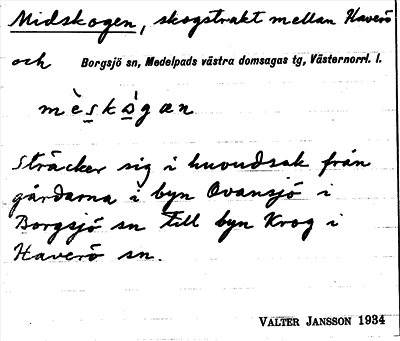 Midskogen, skogstrakt mellan Haverö
och Borgsjö sn, Medelpads västra domsagas tg, Västernorrl. l.
mèskògæn
Sträcker sig i huvudsak från
gårdarna i byn Ovansjö i
Borgsjö sn till byn Krog i
Haverö sn.
VALTER JANSSON 1934